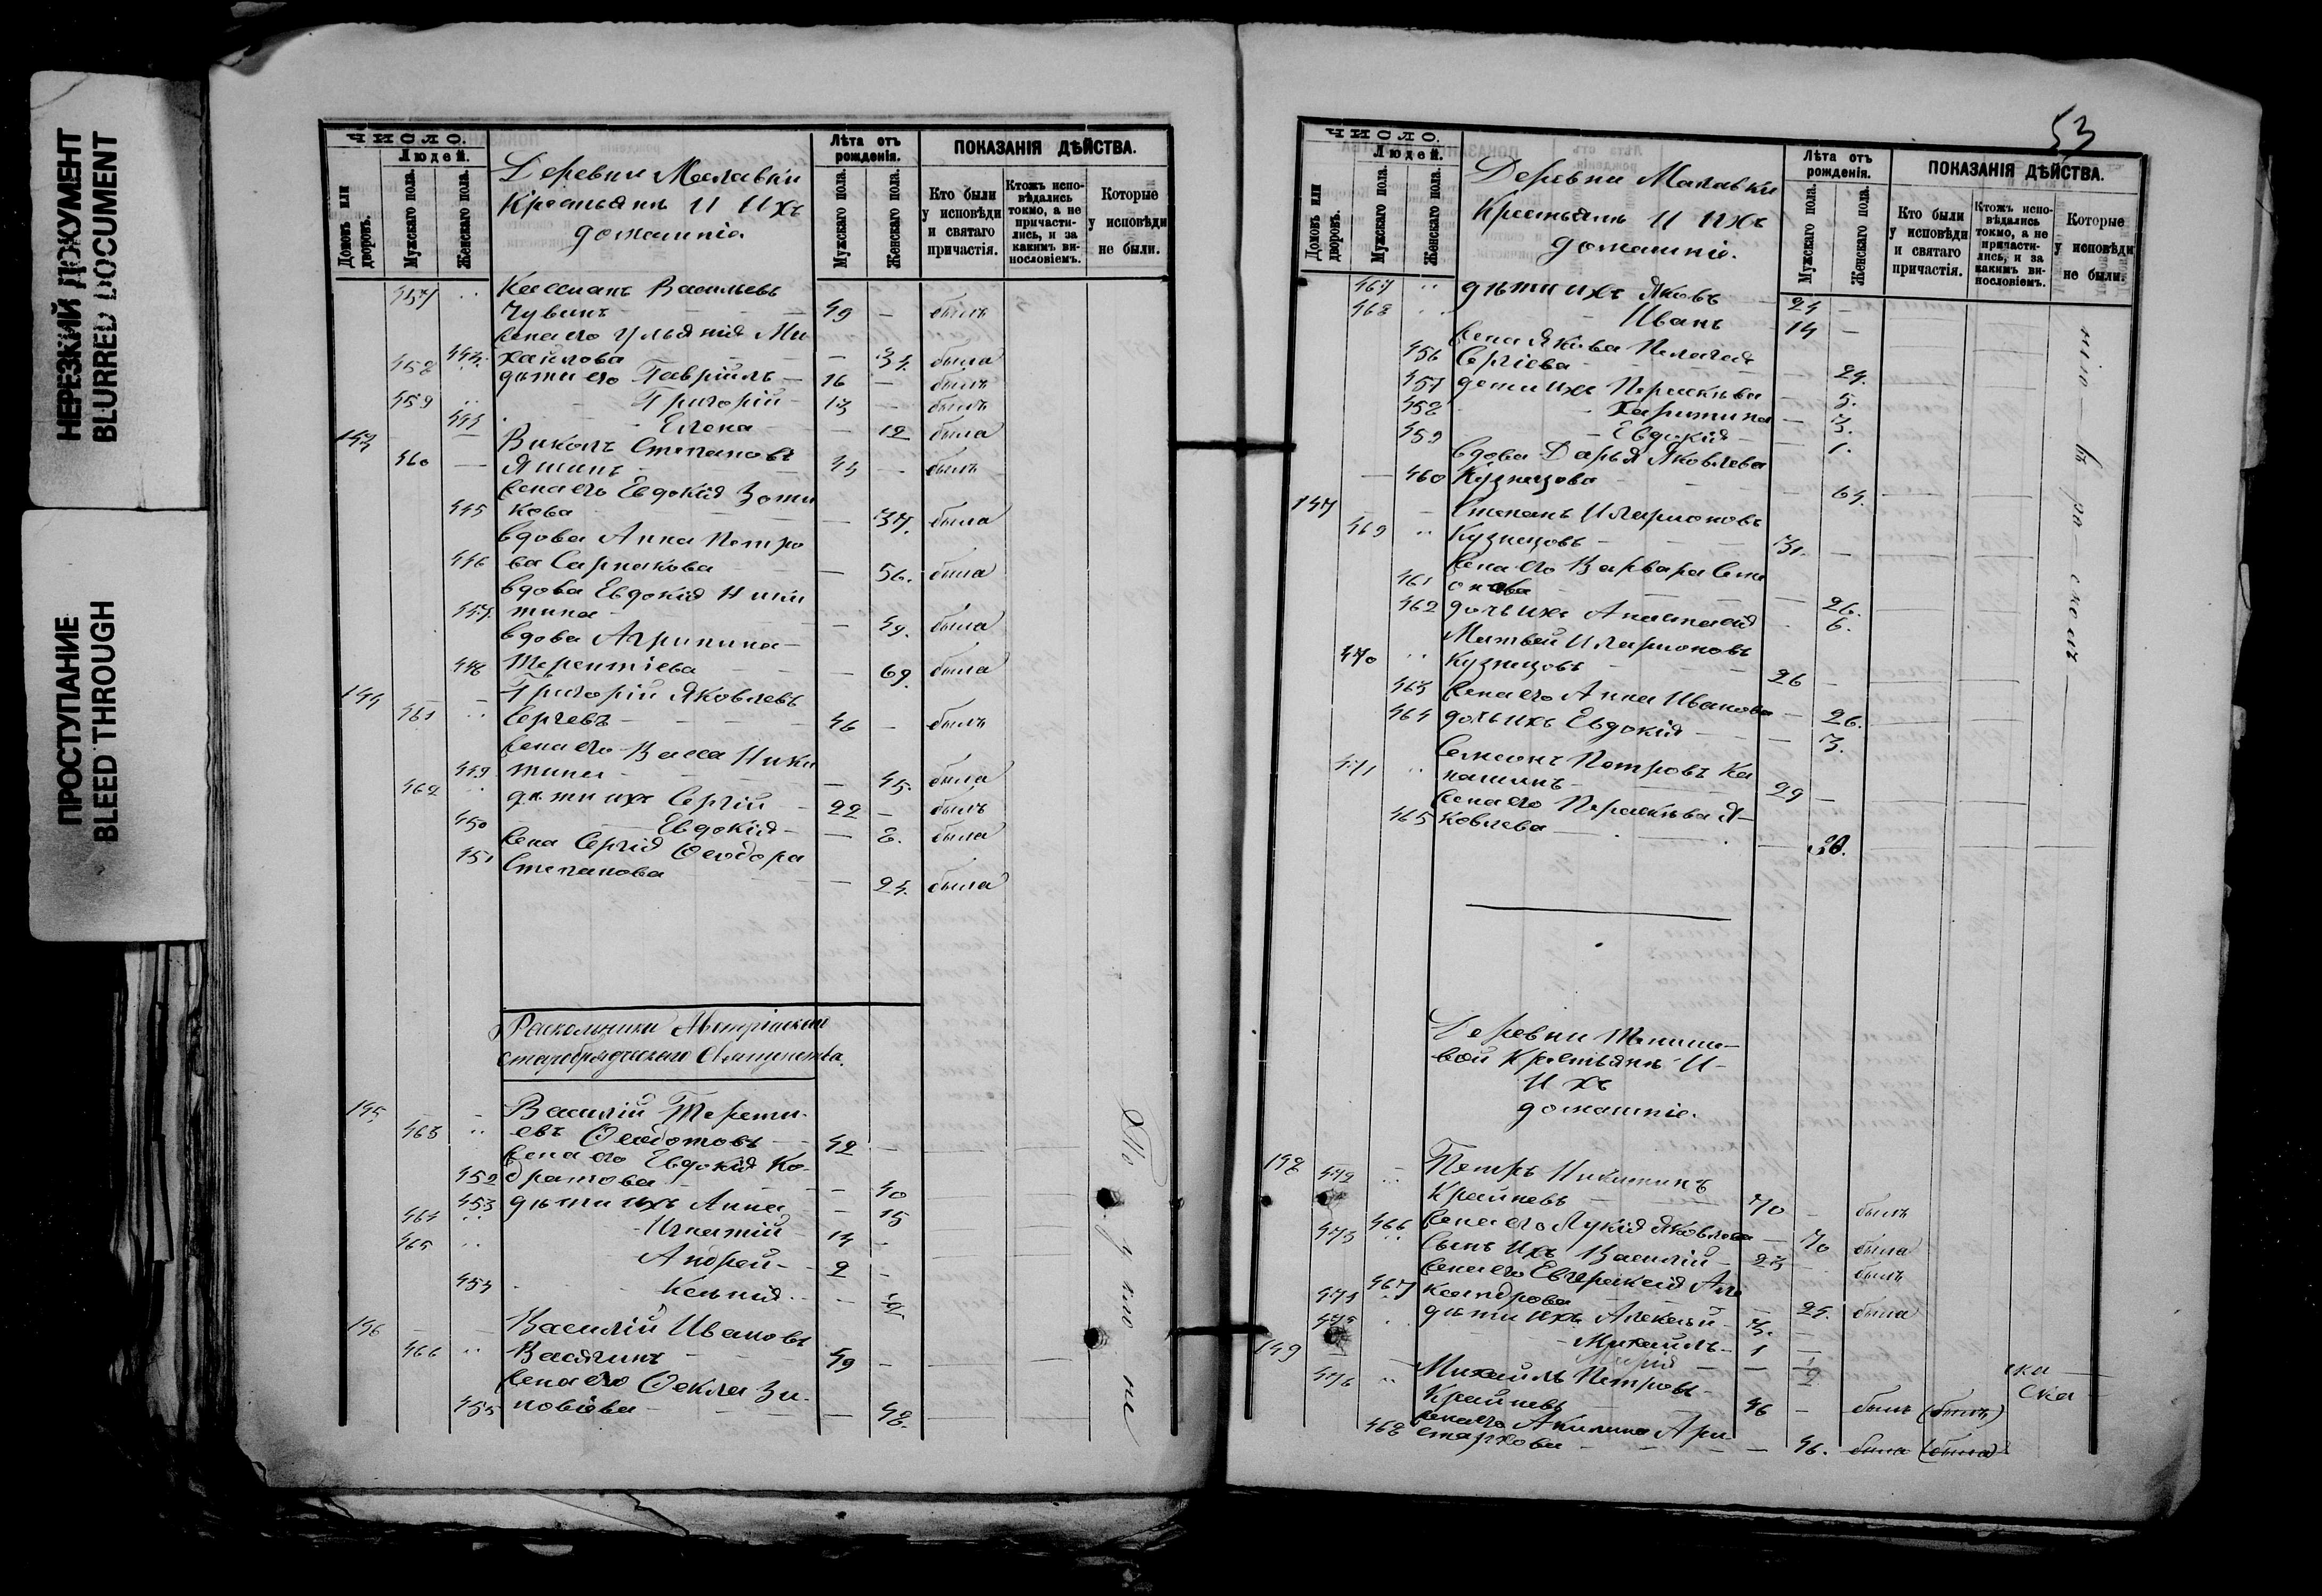 НЕРЕЗКИЙ ДОКУМЕНТ
BLURRED DOCUMENT
ПРОСТУПАНИЕ
BLEED THROUGH
ЧИСЛО.
Домовъ или дворовъ.
Людей.
Мужскаго пола.
Женскаго пола.
Деревни Малавки
Крестьянъ и ихъ
домашніе
Лѣта отъ рожденія.
Мужскаго пола.
Женскаго пола.
ПОКАЗАНІЯ ДѢЙСТВА.
Кто были у исповѣди и святаго причастія.
Ктожъ исповѣдались токмо, а не причастились, и за какимъ винословіемъ.
Которые у исповѣди не были.
457 Кассианъ Васильевъ
Чувинъ 49 — былъ
жена его Ульянія Ми
443 хайлова — 34. была
458 дѣти его Гавріилъ — 16 — былъ
459 Григорій 13 — былъ
444 Елена — 12 была
143 Виколъ Степановъ
460 — Яшинъ 44 — былъ
жена его Евдокія Зоти
445 кова — 37. была
вдова Анна Петро
446 ва Сарпакова — 56. была
вдова Евдокія Ники
447. тина — 49. была
вдова Агрипина
448 Терентіева — 69. была
144 Григорій Яковлевъ
461 Сергеевъ 46 — былъ
жена его Васса Ники
449 тина — 45. была
462 дѣти ихъ Сергій 22 — былъ
450 Евдокія — 8. была
жена Сергія Ѳеодора
451 Степанова — 24. была
Раскольники Австрійскаго
старобрядческаго Священства.
145 Василій Теренти-
463 евъ Ѳедотовъ 42 —
жена его Евдокія Ко-
452 дратова — 40
453 дѣти ихъ Анна — 15
464 Игнатій 14 —
465 Андрей 2 —
454 Ксенія — 1/2
146 Василій Ивановъ
466 Васягинъ 49 —
жена его Ѳекла Зи-
455 новіева — 48.
По у тю не
53
ЧИСЛО.
Домовъ или дворовъ.
Людей.
Мужскаго пола.
Женскаго пола.
Деревни Малавки
Крестьянъ и ихъ
домашніе.
Лѣта отъ рожденія.
Мужскаго пола.
Женскаго пола.
ПОКАЗАНІЯ ДѢЙСТВА.
Кто были у исповѣди и святаго причастія.
Ктожъ исповѣдались токмо, а не причастились, и за какимъ винословіемъ.
Которые у исповѣди не были.
467 дѣти ихъ Яковъ 24 —
468 Иванъ 14 —
жена Якова Пелагея
456 Сергіева — 24.
457 дети ихъ Параскева — 5.
458 Харитина — 3.
459 Евдокія — 1.
вдова Дарья Яковлева
— 460 Кузнецова — 64.
147 Степанъ Иларионовъ
469 Кузнецовъ 31. —
жена его Варвара Сем
461 онова — 26.
462 дочь ихъ Анастасія 6.
Матвей Иларионовъ
470 Кузнецовъ 26 —
463 жена его Анна Иванова — 26.
464 дочь ихъ Евдокія — 3.
Самсонъ Петровъ Ка
471 нашинъ 29 —
жена его Параскева Я-
465 ковлева — 30.
расколъ
Деревни
Крестьянъ и
ихъ
домашніе.
148 472 Петръ Никитинъ
Крайневъ 70 — былъ
466 жена его Лукія Яковлева — 70 была
473 сынъ ихъ Василій 23 былъ
467 жена его Евпраксія Але
ксандрова — 24. была
474 дѣти ихъ Алексѣй 3. —
475 Михаилъ 1 —
Марія — 1/2
149 Михаилъ Петровъ
476 Крайневъ 46 — былъ (былъ)
жена его Акилина Ари
468 стархова — 46. была (была)
ска
Ска